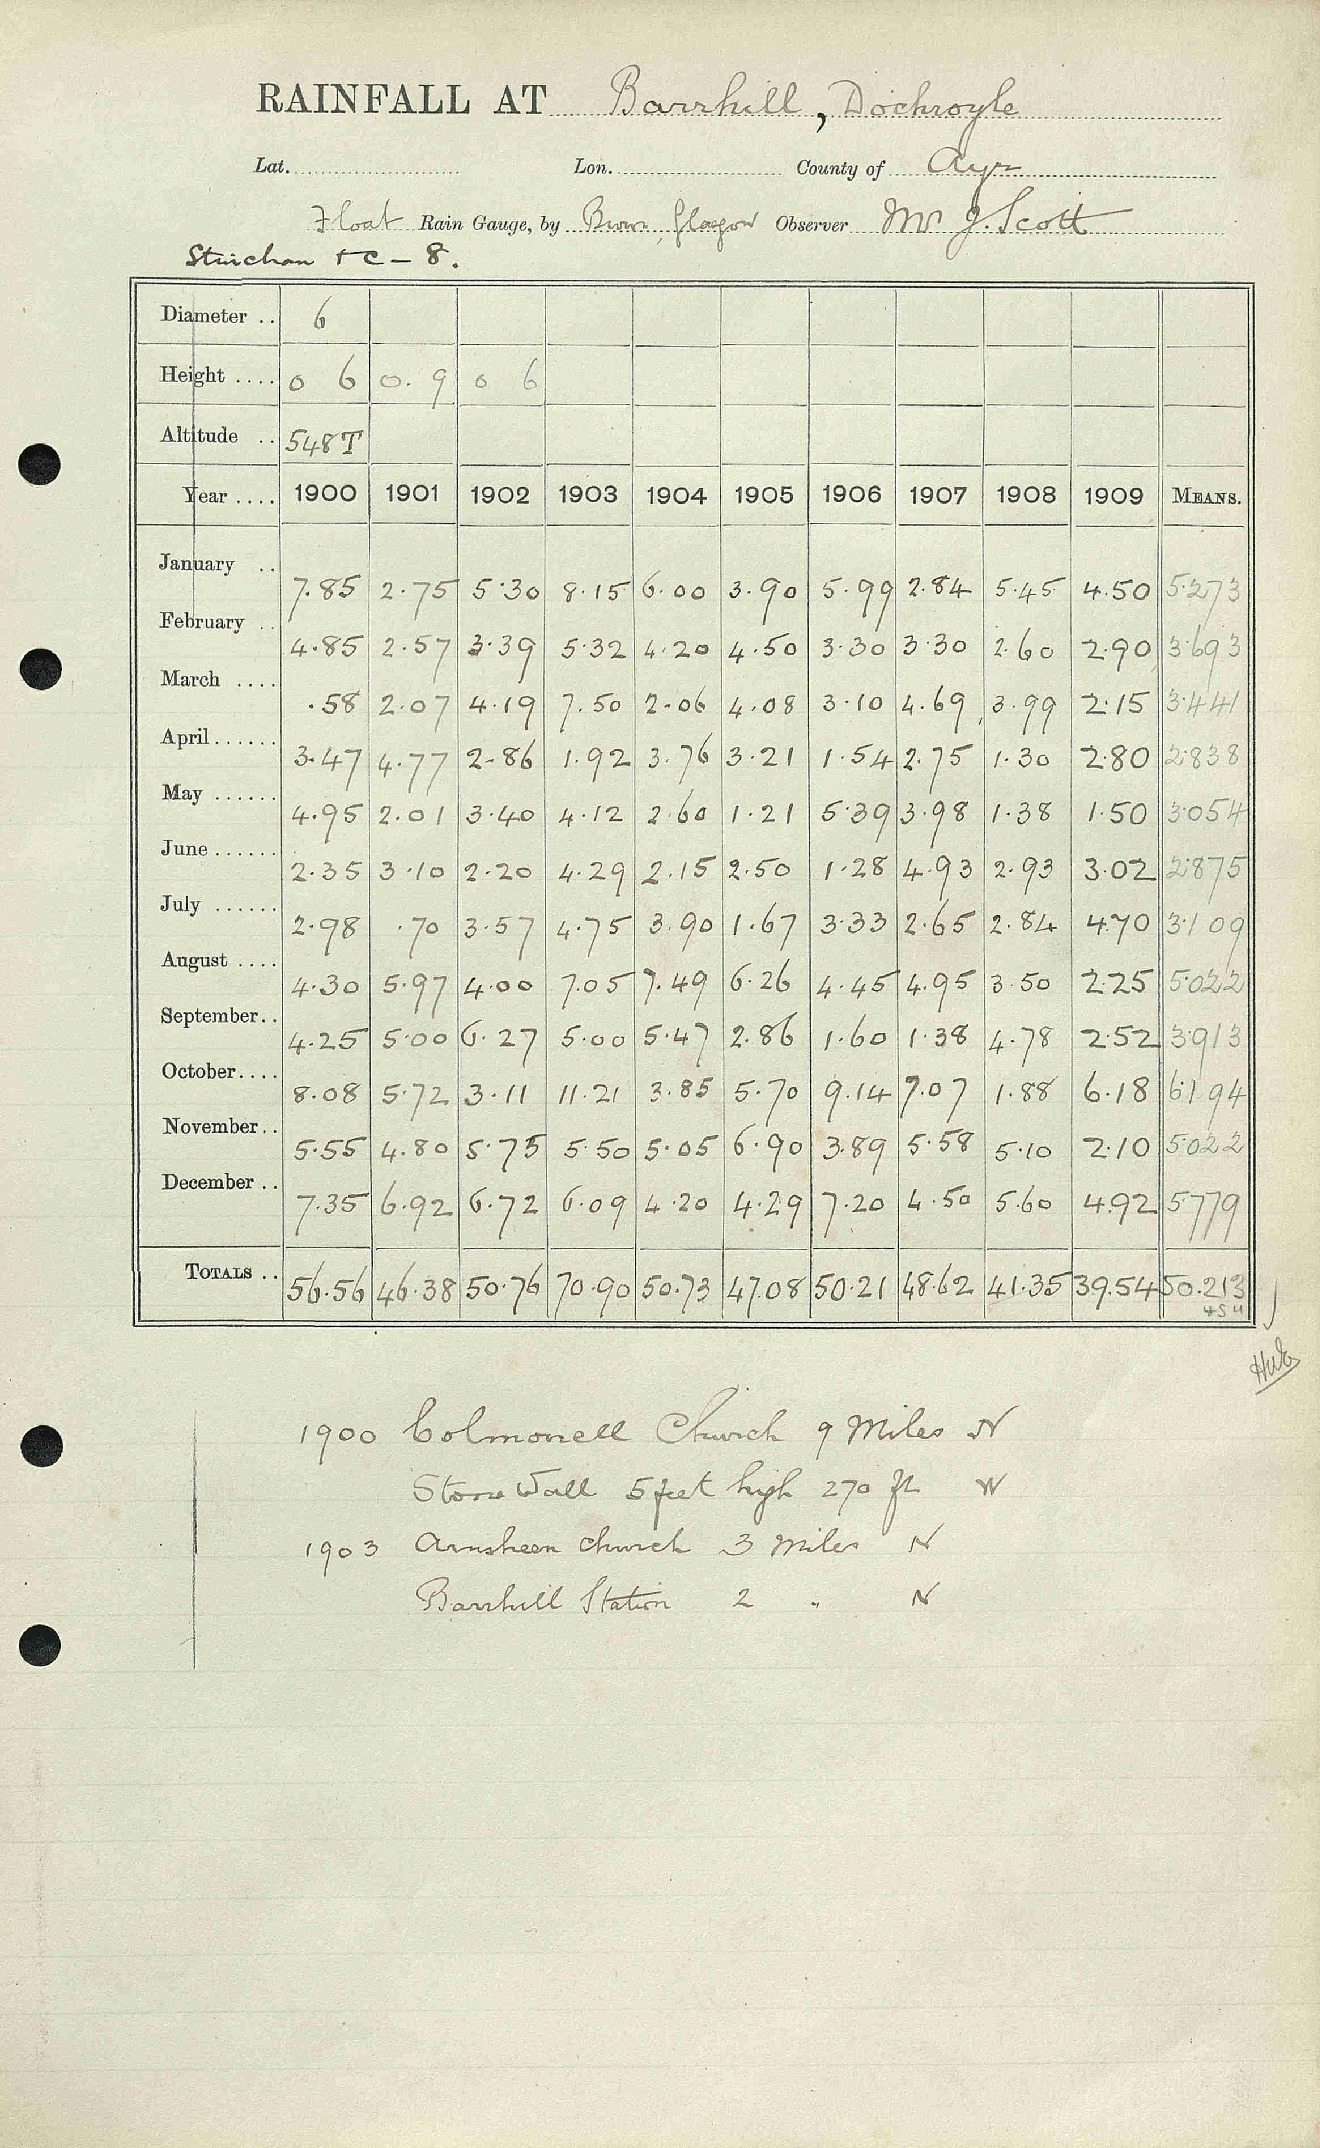 RAINFALL AT Barrhill, Dochroyle
Lat. Lon. County of Ayr
Float Rain Gauge, by Brown, Glasgow Observer Mr J. Scott
Stinchar + C - 8.
Diameter .. 6
Height .... 0 6 0. 9 0 6
Altitude .. 548T
Year .... 1900 1901 1902 1903 1904 1905 1906 1907 1908 1909 MEANS.
January .. 7.85 2.75 5.30 8.15 6.00 3.90 5.99 2.84 5.45 4.50 5.273
February .. 4.85 2.57 3.39 5.32 4.20 4.50 3.30 3.30 2.60 2.90 3.693
March .... .58 2.07 4.19 7.50 2.06 4.08 3.10 4.69 3.99 2.15 3.441
April ...... 3.47 4.77 2.86 1.92 3.76 3.21 1.54 2.75 1.30 2.80 2.838
May ...... 4.95 2.01 3.40 4.12 2.60 1.21 5.39 3.98 1.38 1.50 3.054
June ...... 2.35 3.10 2.20 4.29 2.15 2.50 1.28 4.93 2.93 3.02 2.875
July ...... 2.98 .70 3.57 4.75 3.90 1.67 3.33 2.65 2.84 4.70 3.109
August .... 4.30 5.97 4.00 7.05 7.49 6.26 4.45 4.95 3.50 2.25 5.022
September.. 4.25 5.00 6.27 5.00 5.47 2.86 1.60 1.38 4.78 2.52 3.913
October.... 8.08 5.72 3.11 11.21 3.85 5.70 9.14 7.07 1.88 6.18 6.194
November.. 5.55 4.80 5.75 5.50 5.05 6.90 3.89 5.58 5.10 2.10 5.022
December .. 7.35 6.92 6.72 6.09 4.20 4.29 7.20 4.50 5.60 4.92 5.779
TOTALS .. 56.56 46.38 50.76 70.90 50.73 47.08 50.21 48.62 41.35 39.54 50.213
1900 Colmonell Church 9 Miles N
Stone Wall 5 feet high 270 ft W
1903 Arnsheen church 3 miles N
Barrhill Station 2 " N